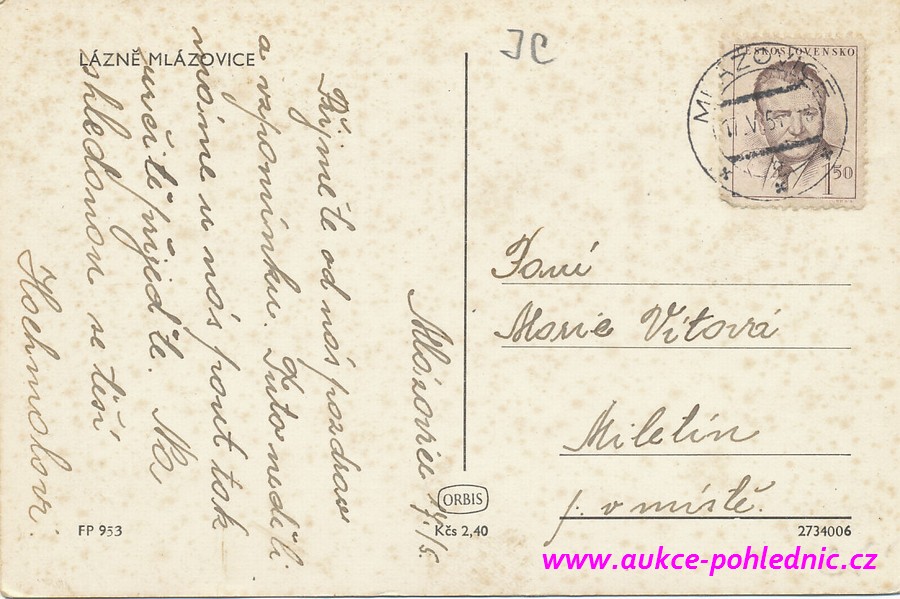 LÁZNĚ MLÁZOVICE
JC
ČESKOSLOVENSKO
MLÁZOVICE
1 50
Mlázovice
Přijměte od nás pozdrav
a vzpomínku. Tuto neděli
máme u nás pout tak
určitě přijeďte. Na
shledanou se těší
Paní
Marie Vítová
Miletín
p. v místě.
ORBIS
FP 953
Kčs 2,40
2734006
www.aukce-pohlednic.cz